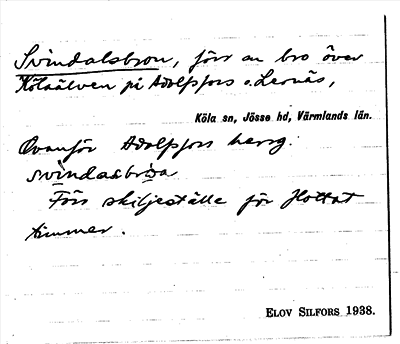 Svindalsbron, förr en bro över
Kölaälven på Adolfsfors o. Lernäs,
Köla sn, Jösse hd, Värmlands län.
Ovanför Adolfsfors herrg.
svindalsbröa
Förr skiljeställe för flottat
timmer.
ELOV SILFORS 1938.